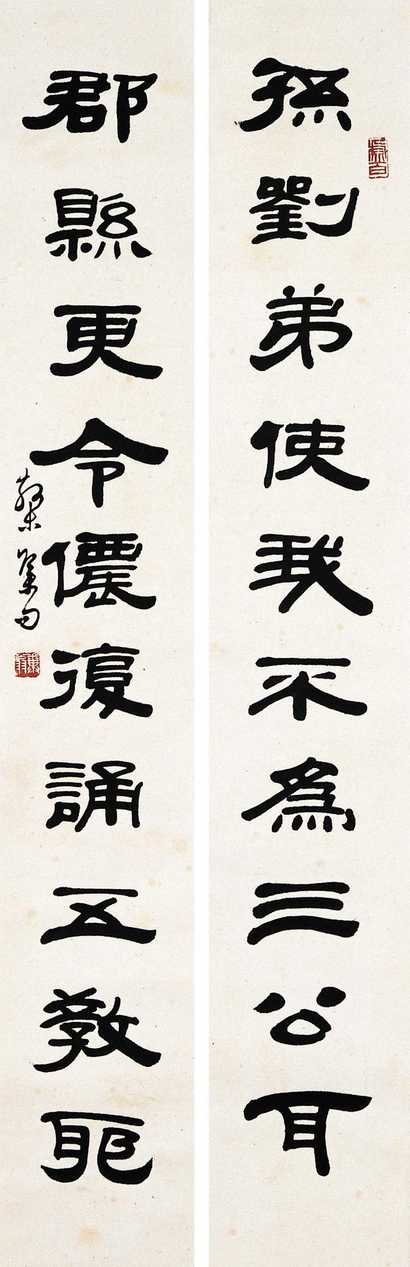 孫劉弟使我不為三公耳
郡縣更令儂復誦五教耶
集句